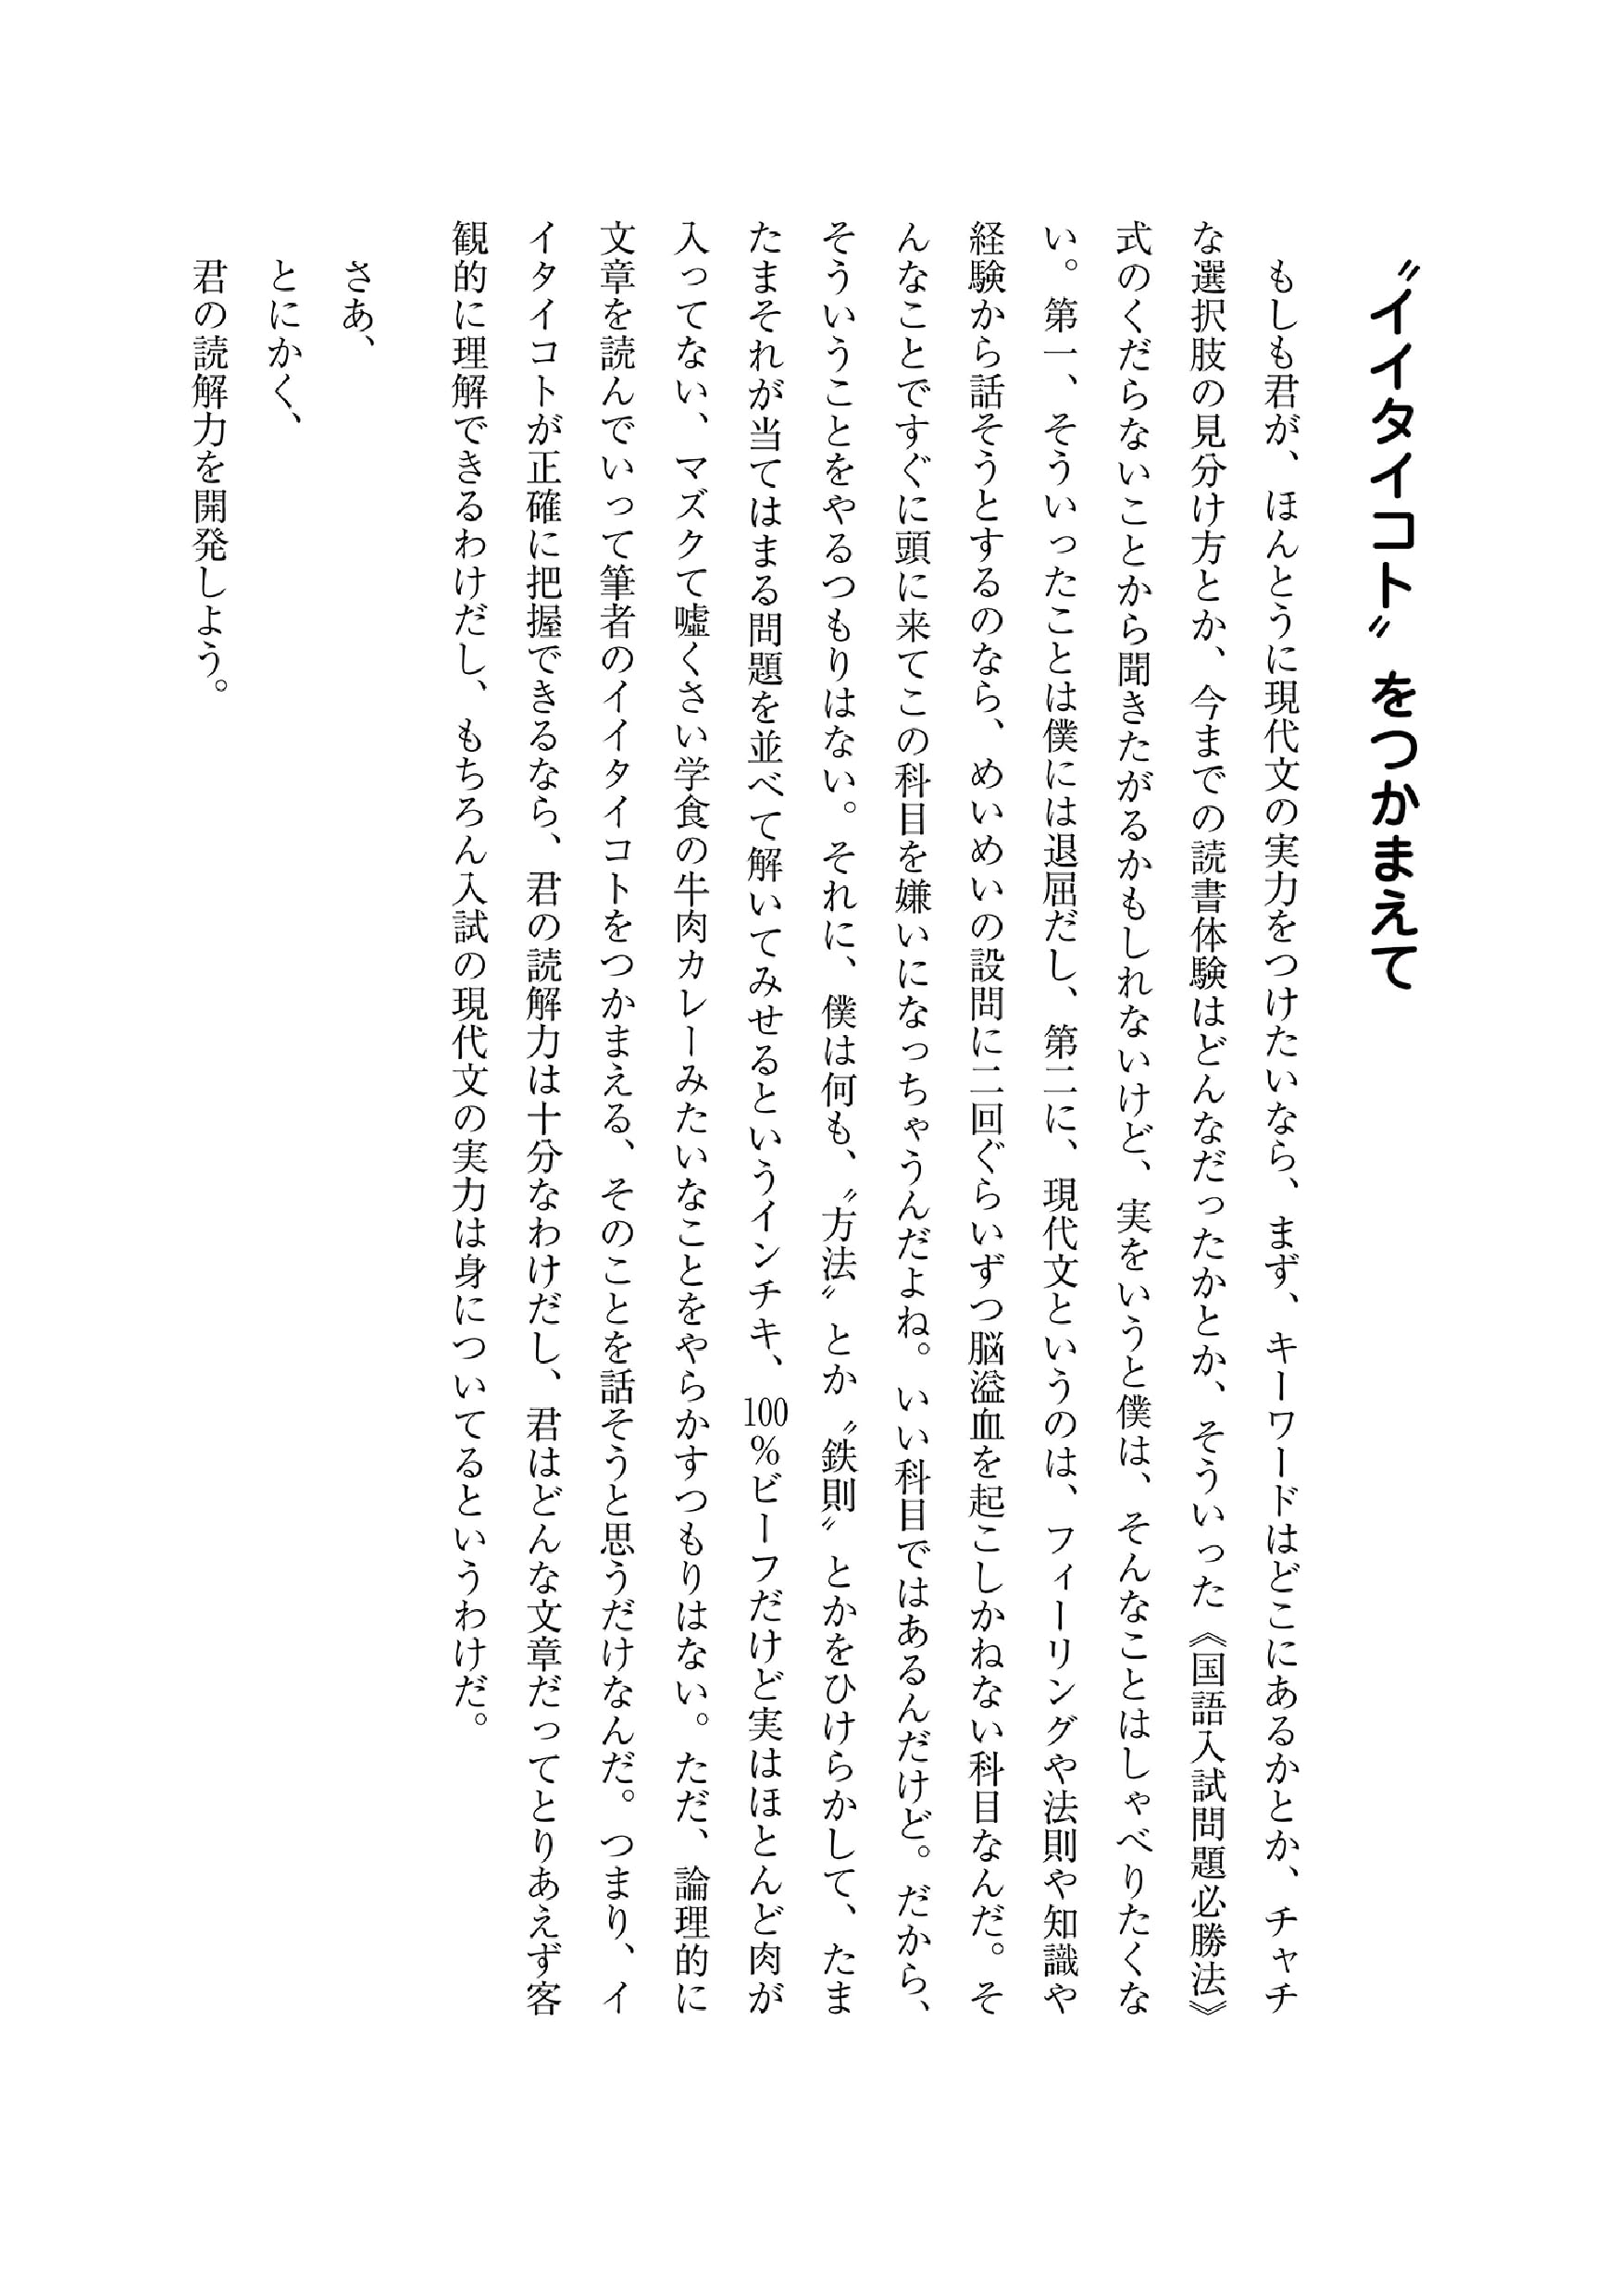 〝イイタイコト〟をつかまえて
もしも君が、ほんとうに現代文の実力をつけたいなら、まず、キーワードはどこにあるかとか、チャチ
な選択肢の見分け方とか、今までの読書体験はどんなだったかとか、そういった《国語入試問題必勝法》
式のくだらないことから聞きたがるかもしれないけど、実をいうと僕は、そんなことはしゃべりたくな
い。第一、そういったことは僕には退屈だし、第二に、現代文というのは、フィーリングや法則や知識や
経験から話そうとするのなら、めいめいの設問に二回ぐらいずつ脳溢血を起こしかねない科目なんだ。そ
んなことですぐに頭に来てこの科目を嫌いになっちゃうんだよね。いい科目ではあるんだけど。だから、
そういうことをやるつもりはない。それに、僕は何も、〝方法〟とか〝鉄則〟とかをひけらかして、たま
たまそれが当てはまる問題を並べて解いてみせるというインチキ、100％ビーフだけど実はほとんど肉が
入ってない、マズクて嘘くさい学食の牛肉カレーみたいなことをやらかすつもりはない。ただ、論理的に
文章を読んでいって筆者のイイタイコトをつかまえる、そのことを話そうと思うだけなんだ。つまり、イ
イタイコトが正確に把握できるなら、君の読解力は十分なわけだし、君はどんな文章だってとりあえず客
観的に理解できるわけだし、もちろん入試の現代文の実力は身についてるというわけだ。
さあ、
とにかく、
君の読解力を開発しよう。